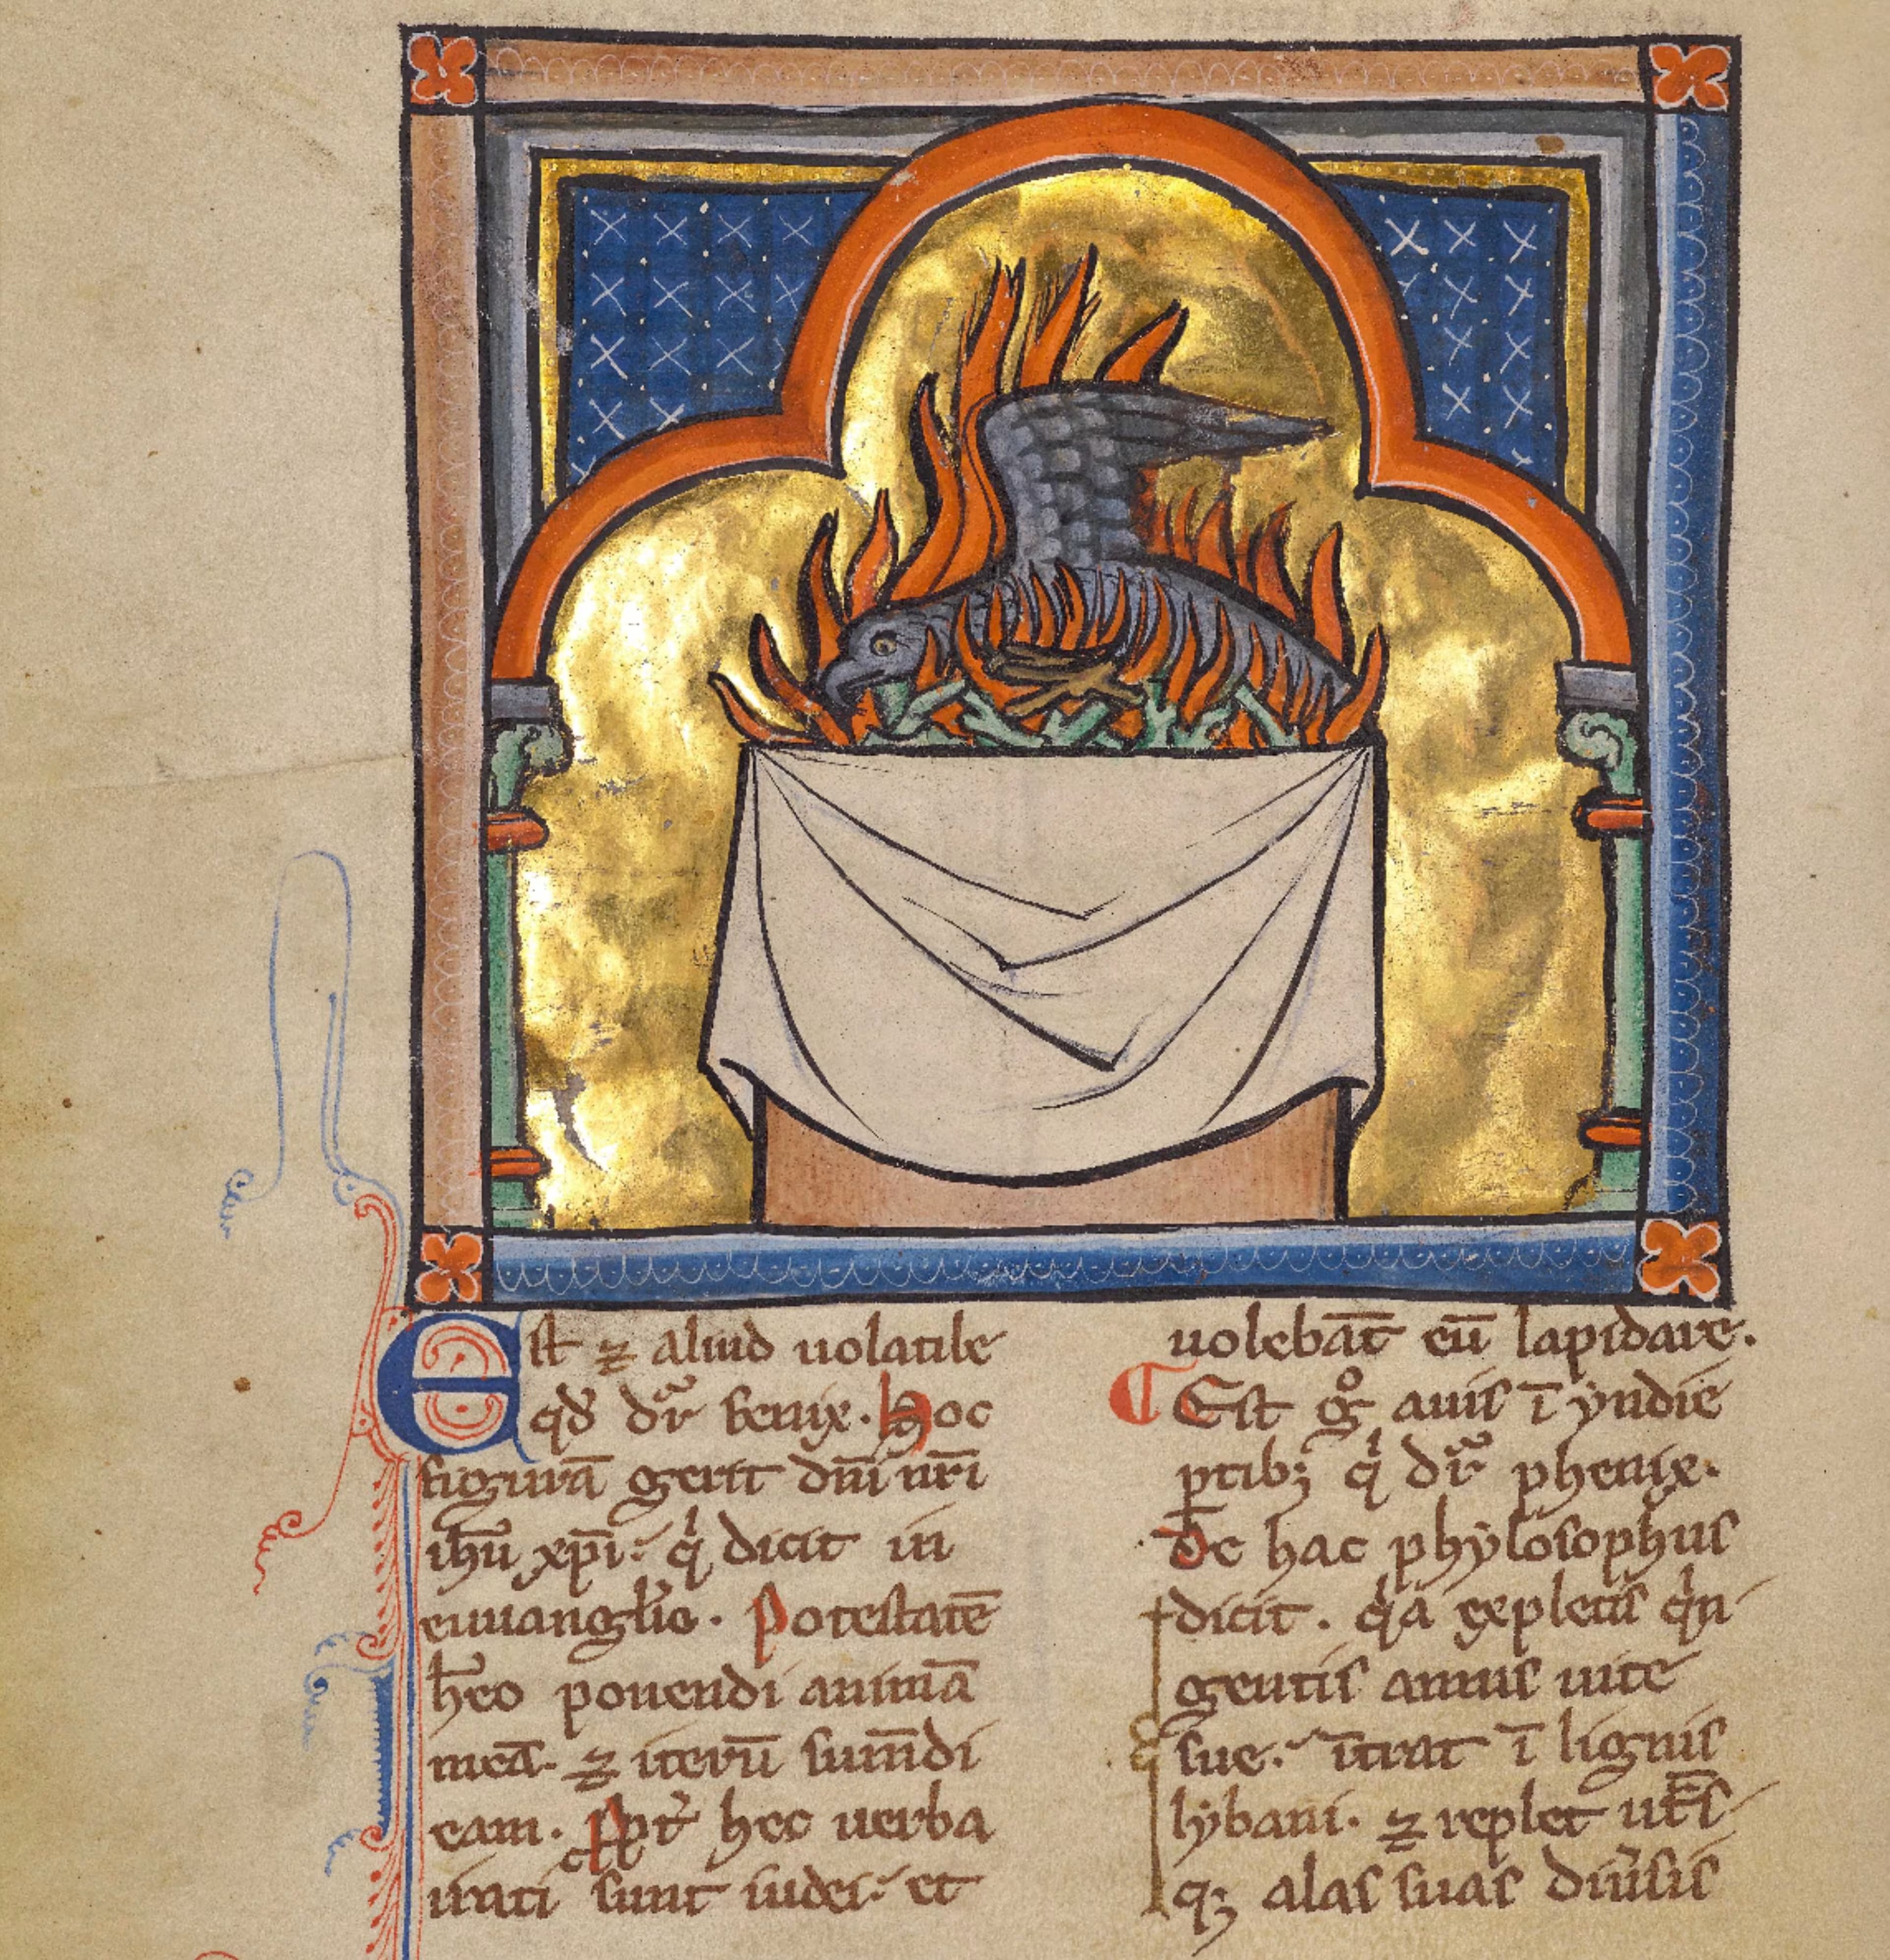 Est ⁊ aliud uolatile
qd̄ dr̄ fenix. Hoc
figurā gerit dn̄i nr̄i
ihū xp̄i: qⁱ dicit in
euuangl̄io. Potestatē
h̄eo ponendi animā
meā. ⁊ iterū sum̄di
eam. Ppt̄ hec uerba
irati sunt iudei: et
uolebāt eū lapidare.
Est gͦ auis ī ẏndie
ꝑtibꝫ qⁱ dr̄ phenix.
De hac phẏlosophus
dicit. qⁱa expletis qⁱn
gentis annis uite
sue. īt̄rat ī lignis
lẏbani. ⁊ replet ut̄s
qꝫ alas suas diūsis